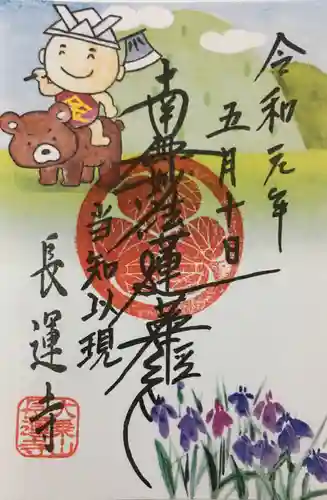 令和元年
五月十日
南無妙法蓮華経
当知以現
長運寺
金